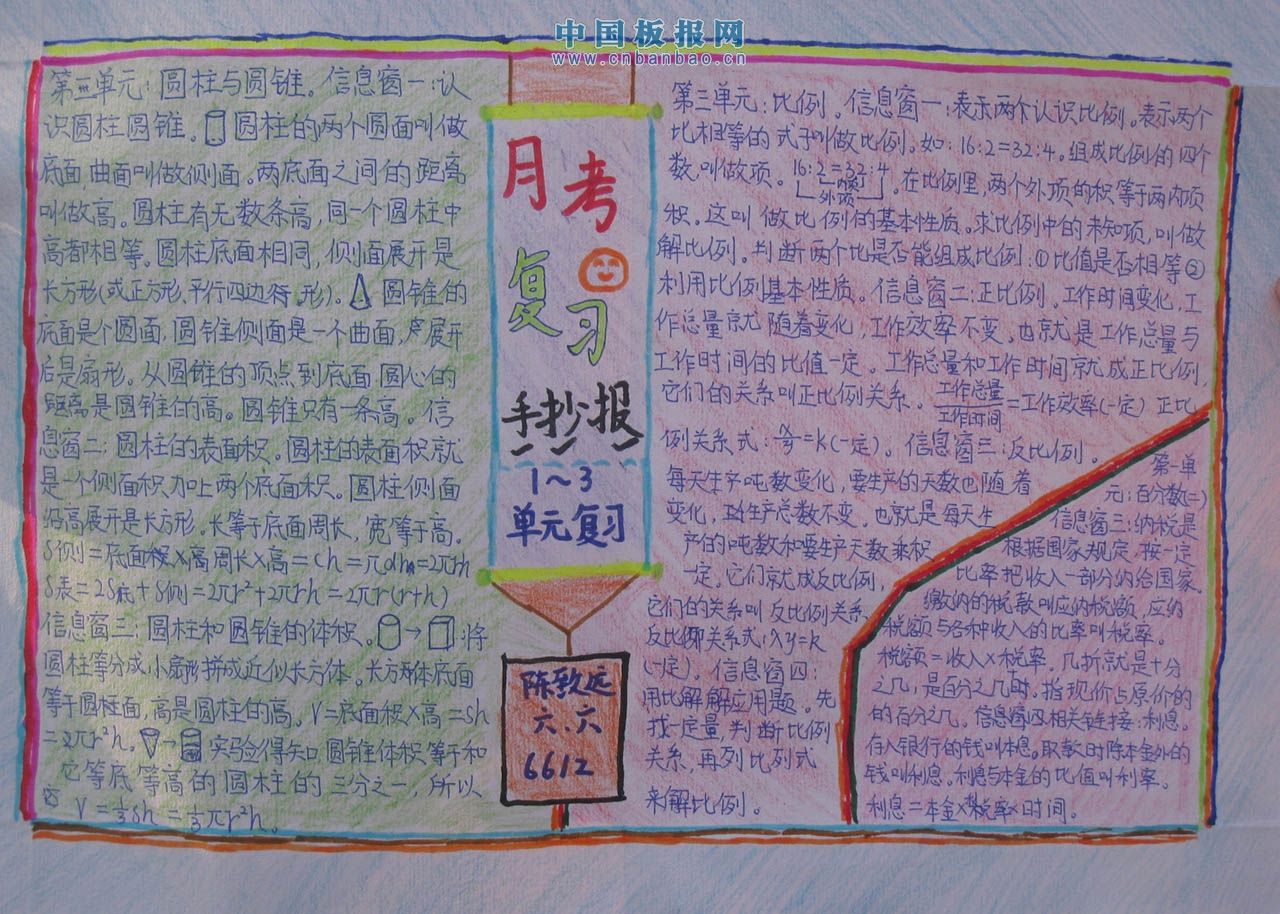 中国板报网
www.cnbanbao.cn
第二单元:圆柱与圆锥。信息窗一:认
识圆柱圆锥。圆柱的两个圆面叫做
底面,曲面叫做侧面。两底面之间的距离
叫做高。圆柱有无数条高,同一个圆柱中
高都相等。圆柱底面相同,侧面展开是
长方形(或正方形、平行四边形)。圆锥的
底面是个圆面,圆锥侧面是一个曲面,展开
后是扇形。从圆锥的顶点到底面圆心的
距离是圆锥的高。圆锥只有一条高。信
息窗二:圆柱的表面积。圆柱的表面积就
是一个侧面积加上两个底面积。圆柱侧面
沿高展开是长方形。长等于底面周长,宽等于高。
S侧=底面周长×高=ch=πdh=2πrh
S表=2S底+S侧=2πr²+2πrh=2πr(r+h)
信息窗三:圆柱和圆锥的体积。→:将
圆柱等分成小扇形拼成近似长方体。长方体底面
等于圆柱面,高是圆柱的高。V=底面积×高=sh
=πr²h。→实验得知圆锥体积等于和
它等底等高的圆柱的三分之一,所以
V=⅓sh=⅓πr²h。
月考
复习
手抄报
1~3
单元复习
陈致远
六.六
6612
第三单元:比例。信息窗一:表示两个认识比例。表示两个
比相等的式子叫做比例。如:16:2=32:4。组成比例的四个
数,叫做项。16:2=32:4。在比例里,两个外项的积等于两内项
内项
外项
积。这叫做比例的基本性质。求比例中的未知项,叫做
解比例。判断两个比是否能组成比例:①比值是否相等②
利用比例基本性质。信息窗二:正比例。工作时间变化,工
作总量就随着变化,工作效率不变。也就是工作总量与
工作时间的比值一定。工作总量和工作时间就成正比例,
它们的关系叫正比例关系。工作总量/工作时间=工作效率(一定)正比
例关系式:x/y=k(一定)。信息窗三:反比例。
每天生产吨数变化,要生产的天数也随着
变化,生产总数不变。也就是每天生
产的吨数和要生产天数乘积
一定。它们就成反比例,
它们的关系叫反比例关系
反比例关系式:xy=k
(一定)。信息窗四:
用比解解应用题。先
找一定量,判断比例
关系,再列比列式
来解比例。
第一单
元:百分数(二)
信息窗三:纳税是
根据国家规定,按一定
比率把收入一部分纳给国家。
缴纳的税款叫应纳税额,应纳
税额与各种收入的比率叫税率。
税额=收入×税率。几折就是十分
之几,是百分之几时。指现价占原价的
的百分之几。信息窗四相关链接:利息。
存入银行的钱叫本息。取款时除本金外的
钱叫利息。利息与本金的比值叫利率。
利息=本金×税率×时间。